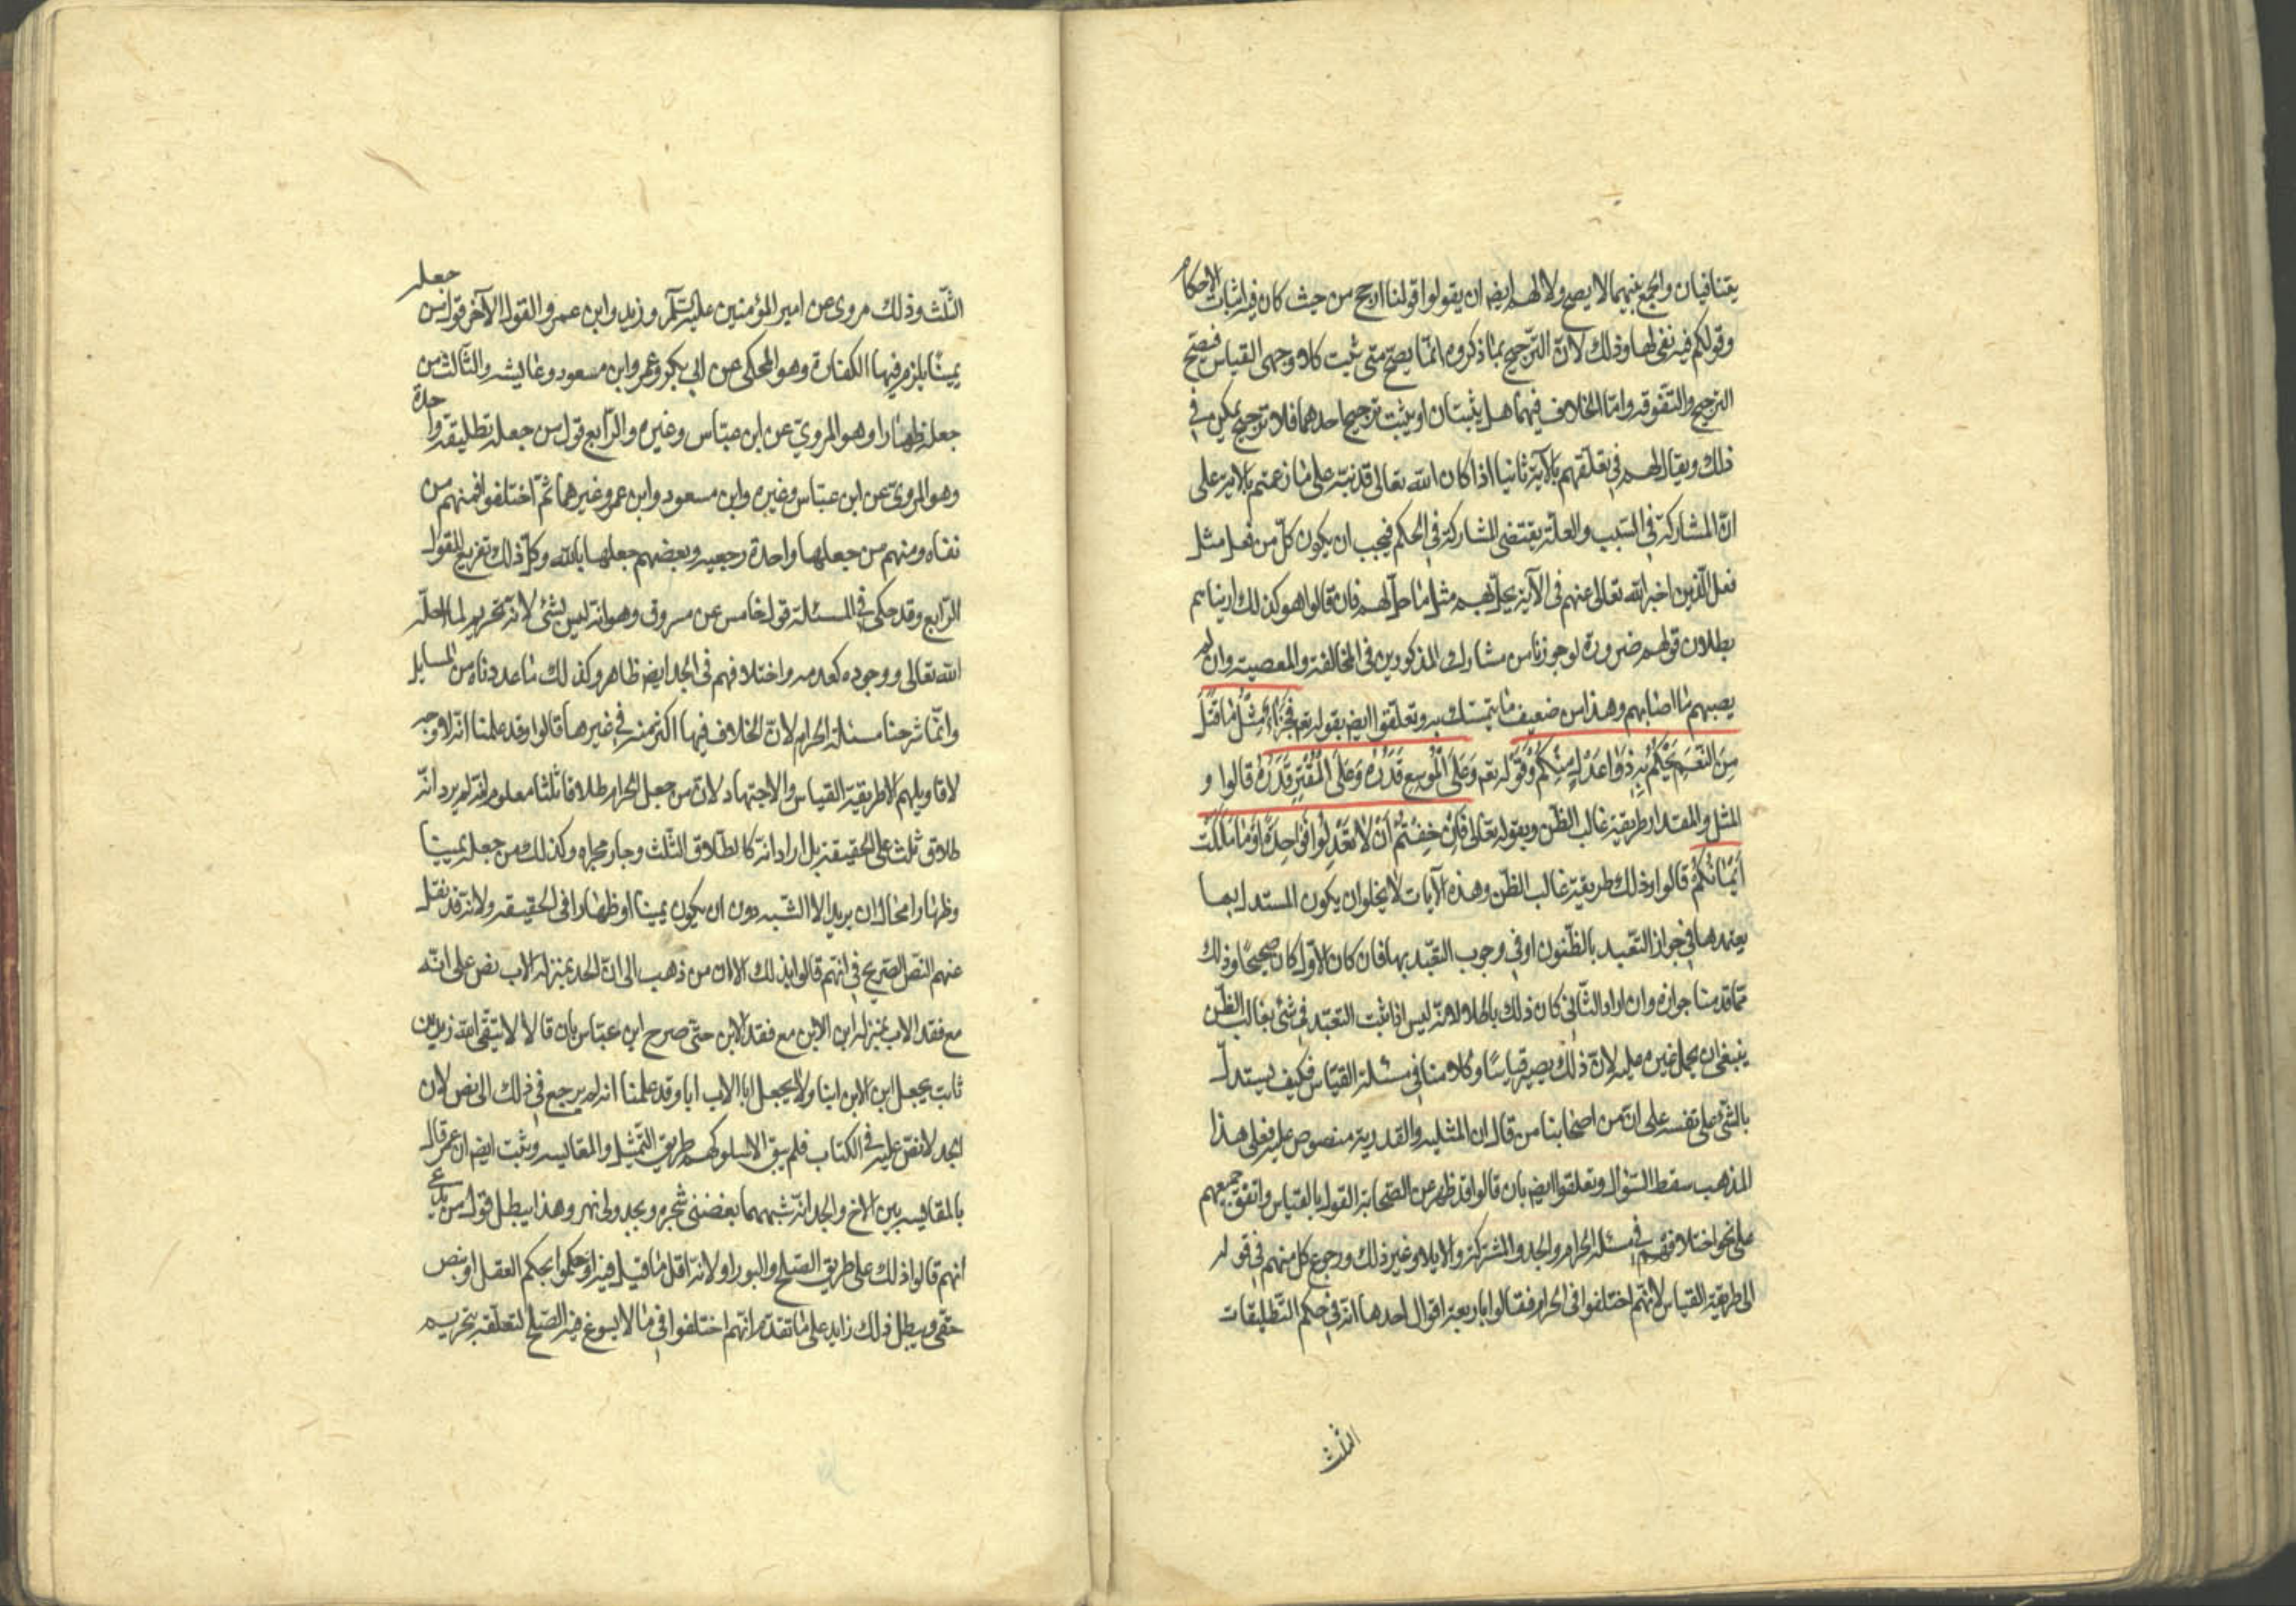 يتنافيان والجمع بينهما لا يصح ولا لهم ايضا ان يقولوا قولنا ارجح من حيث كان فيه اثبات الاحكام
وقولكم فيه نفى لها وذلك لان الترجيح بما ذكروه انما يصح متى ثبت كلا وجهى القياس فيصح
الترجيح والتقوية واما الخلاف فيهما هل يثبتان او يثبت ترجيح احدهما فلا ترجيح يمكن في
ذلك ويقال لهم في تعلقهم بالآية ثانيا اذا كان الله تعالى قد نبه على ما زعمتم بالآية على
ان المشاركة في السبب والعلة يقتضى المشاركة في الحكم فيجب ان يكون كل من فعل مثل
فعل الذين اخبر الله تعالى عنهم في الآية يحل بهم مثل ما حل لهم فان قالوا هو كذلك اريناهم
بطلان قولهم ضرورة لوجودنا من مشارك المذكورين في المخالفة والمعصية وان لم
يصبهم ما اصابهم وهذا من ضعيف ما يتمسك به وتعلقوا ايضا بقوله تعم فَجَزَاءٌ مِثْلُ مَا قَتَلَ
مِنَ النَّعَمِ يَحْكُمُ بِهِ ذَوَا عَدْلٍ مِنْكُمْ وقوله تعم وَعَلَى الْمُوسِعِ قَدَرُهُ وَعَلَى الْمُقْتِرِ قَدَرُهُ قالوا و
المثل والمقدار طريقه غالب الظن وبقوله تعالى فَإِنْ خِفْتُمْ أَنْ لَا تَعْدِلُوا فَوَاحِدَةً أَوْ مَا مَلَكَتْ
أَيْمَانُكُمْ قالوا وذلك طريقه غالب الظن وهذه الآيات لا يخلو ان يكون المستدل بها
يعتمدها في جواز التعبد بالظنون او في وجوب التعبد بها فان كان الاول كان صحيحا وذلك
مما قدمنا جوازه وان اراد الثاني كان ذلك باطلا لانه ليس اذا ثبت التعبد في شئ بغالب الظن
ينبغي ان يحمل غيره عليه لان ذلك يصير قياسا وكلامنا في مسئلة القياس فكيف يستدل
بالشئ على نفسه على ان من اصحابنا من قال ان المثلية والقدرية منصوص عليه فعلى هذا
المذهب سقط السؤال وتعلقوا ايضا بان قالوا قد ظهر عن الصحابة القول بالقياس واتفق جميعهم
على نحو اختلافهم في مسئلة الحرام والجد والمشتركة والايلاء وغير ذلك ورجوع كل منهم في قوله
الى طريقة القياس لانهم اختلفوا في الحرام فقالوا باربعة اقوال احدها انه في حكم التطليقات
الثلث
الثلث وذلك مروى عن امير المؤمنين عليه السلام وزيد وابن عمر والقول الآخر قول من جعله
يمينا يلزم فيها الكفارة وهو المحكى عن ابي بكر وعمر وابن مسعود وعايشه والثالث من
جعله ظهارا وهو المروى عن ابن عباس وغيره والرابع قول من جعله تطليقه واحدة
وهو المروى عن ابن عباس وغيره وابن مسعود وابن عمر وغيرهما ثم اختلفوا فمنهم من
نفاه ومنهم من جعلها واحدة رجعيه وبعضهم جعلها باينه وكل ذلك تفريع للقول
الرابع وقد حكى في المسئلة قول خامس عن مسروق وهو انه ليس بشئ لانه تحريم لما احله
الله تعالى ووجوده كعدمه واختلافهم في الجد ايضا ظاهر وكذلك ما عددناه من المسايل
وانما شرحنا مسئلة الحرام لان الخلاف فيها اكثر منه في غيرها قالوا وقد علمنا انه لا وجه
لاقاويلهم الا طريقة القياس والاجتهاد لان من جعل الحرام طلاقا ثلثا معلوم انه لم يرد انه
طلاق ثلث على الحقيقة بل اراد انه كالطلاق الثلث وجار مجراه وكذلك من جعله يمينا
وظهارا محال ان يريد الا الشبه دون ان يكون يمينا او ظهارا في الحقيقه ولانه قد نقل
عنهم النص الصريح في انهم قالوا بذلك لان من ذهب الى ان الجد بمنزلة الاب نص على انه
مع فقد الاب بمنزلة ابن الابن مع فقد الابن حتى صرح ابن عباس بان قال الا لا يتقى الله زيد بن
ثابت يجعل ابن الابن ابنا ولا يجعل ابا الاب ابا وقد علمنا انه لم يرجع في ذلك الى نص لان
الجد لا نص عليه في الكتاب فلم يبق الا سلوكهم طريق التمثيل والمقايسه وثبت ايضا ان عمر قال
بالمقايسه بين الاخ والجد انه شبههما بغصنى شجره وبجدولى نهر وهذا يبطل قول من يدعى
انهم قالوا ذلك على طريق الصلح والبور او لانه اقل ما قيل فيه او حكموا بحكم العقل او بنص
خفى ويبطل ذلك زايد على ما تقدم انهم اختلفوا في ما لا يسوغ فيه الصلح لتعلقه بتحريم